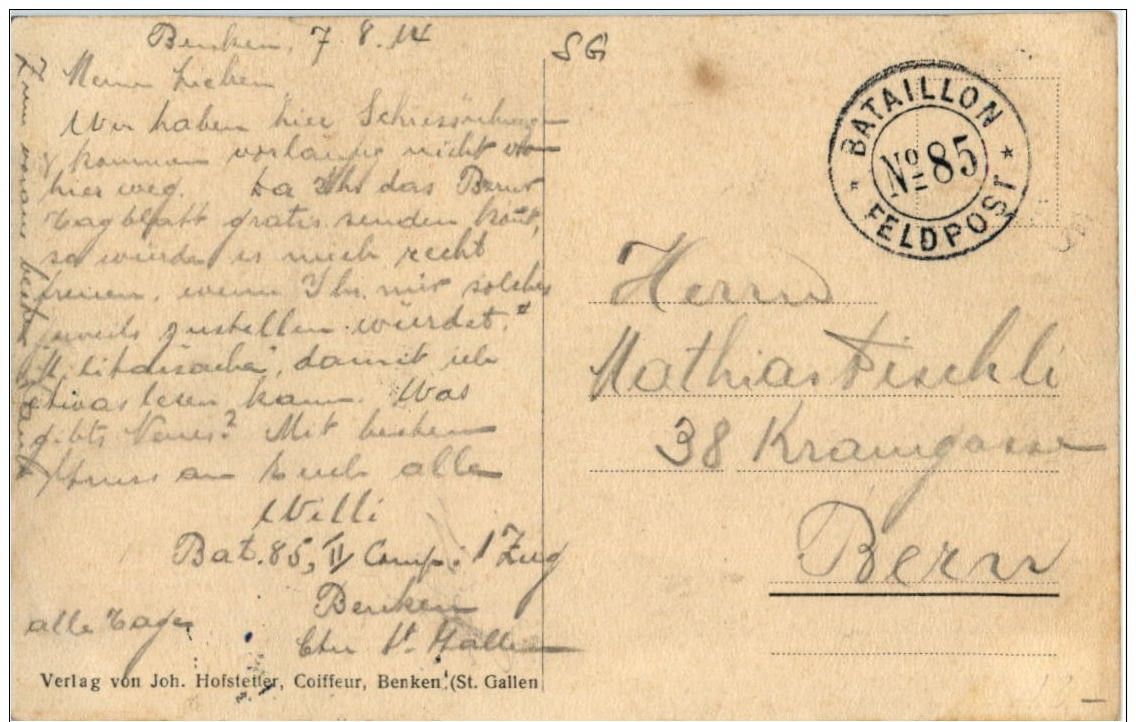 Benken, 7.8.14
Meine Lieben
Wir haben hier Schiessübungen
& kommen vorläufig nicht von
hier weg. Da Ihr das Berner
Tagblatt gratis senden könt,
so würde es mich recht
freuen, wenn Ihr mir solches
jeweils zustellen würdet. "
Militärsache", damit ich
etwas lesen kann. Was
gibts Neues? Mit bestem
Gruss an Euch alle
Willi
Bat. 85, II Comp. 1 Zug
Benken
Ctn St. Gallen
alle Tage
zum voraus besten Dank
Verlag von Joh. Hofstetter, Coiffeur, Benken (St. Gallen
SG
BATAILLON
No 85
FELDPOST
Herrn
Mathias Fischli
38 Kramgasse
Bern